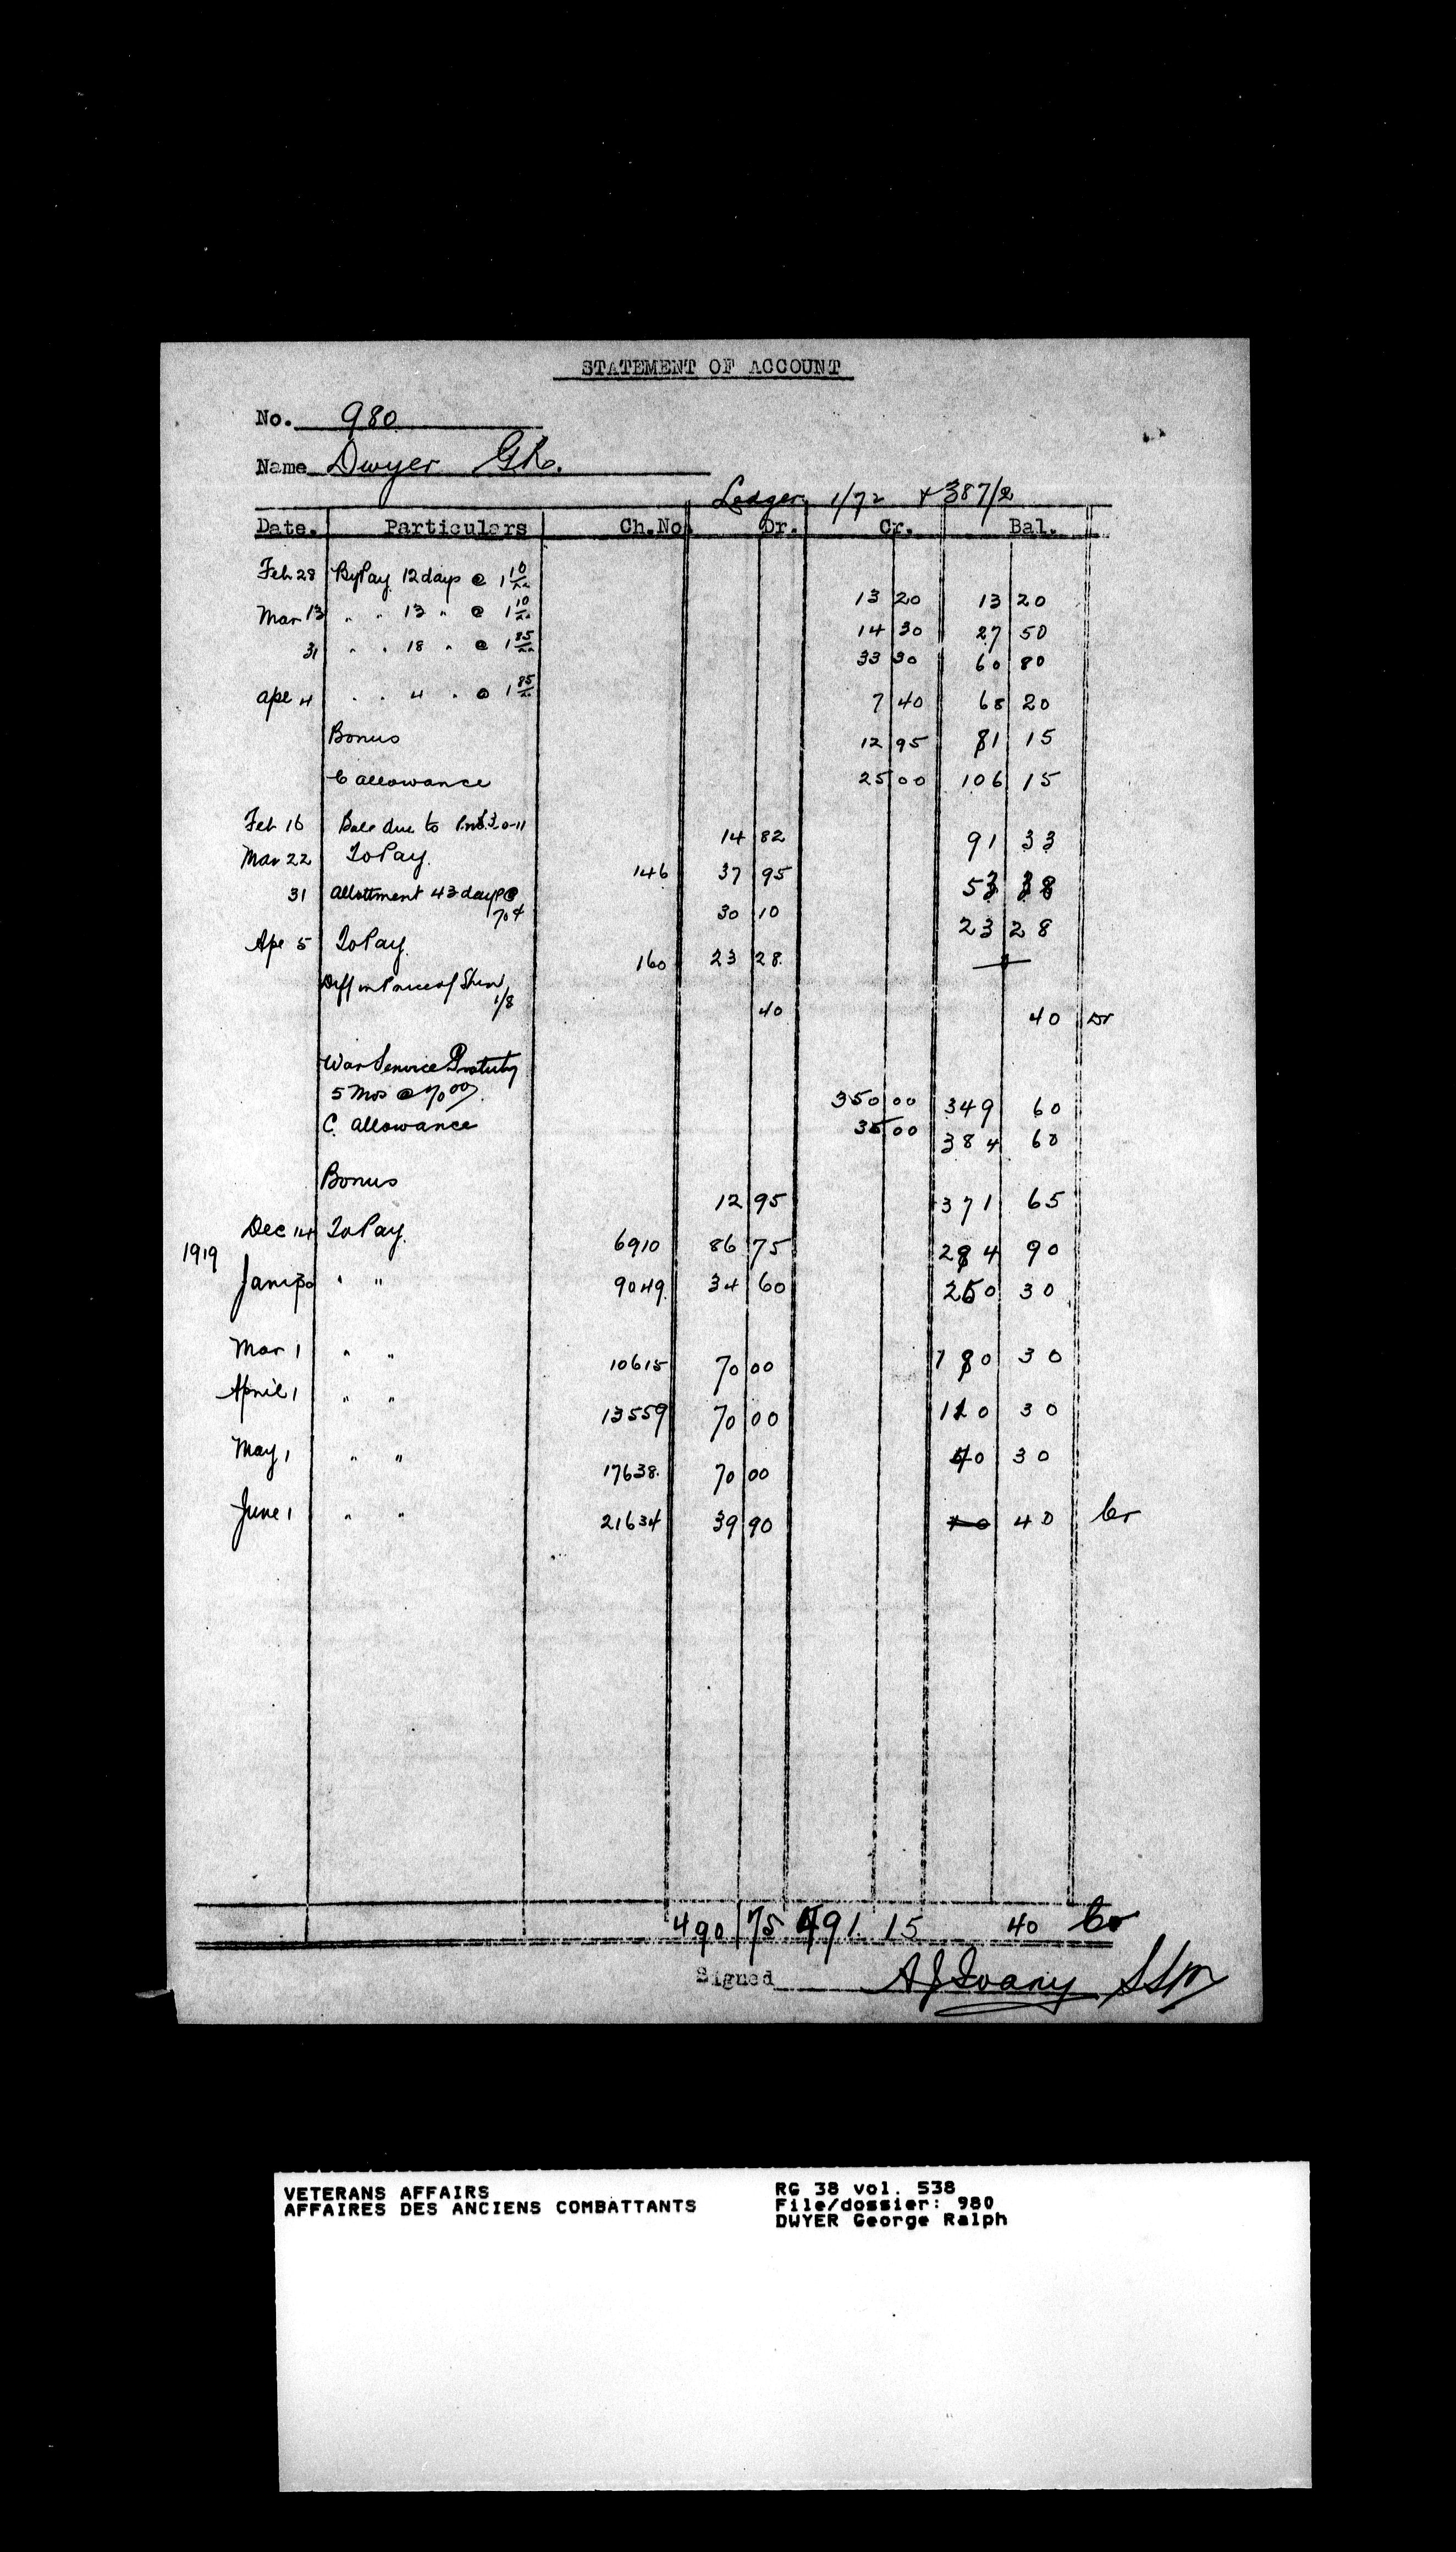 STATEMENT OF ACCOUNT
No. 980
Name Dwyer G.R.
Ledger 1/72 + 387/2
Date. Particulars Ch.No. Dr. Cr. Bal.
Feb 28 By Pay 12 days @ 1 10/00 13 20 13 20
Mar 13 " " 13 " @ 1 10/00 14 30 27 50
31 " " 18 " @ 1 85/00 33 30 60 80
Apr 4 " " 4 " @ 1 85/00 7 40 68 20
Bonus 12 95 81 15
C allowance 25 00 106 15
Feb 16 Bale due to 14 82 91 33
Mar 22 To Pay. 146 37 95 53 38
31 Allottment 43 days @ 70¢ 30 10 23 28
Apr 5 To Pay. 160 23 28
Diff in Price of 1/8 40 40 Dr
War Service Gratuity
5 Mos @ 70 00 350 00 349 60
C. Allowance 35 00 384 60
Bonus 12 95 371 65
Dec 14 To Pay. 6910 86 75 284 90
1919
Jan 30 " " 9049 34 60 250 30
Mar 1 " " 10615 70 00 180 30
April 1 " " 13559 70 00 110 30
May 1 " " 17638 70 00 40 30
June 1 " " 21634 39 90 40 Cr
490 75 491 15 40 Cr
Signed A J Ivany SSM
VETERANS AFFAIRS RG 38 vol. 538
AFFAIRES DES ANCIENS COMBATTANTS File/dossier: 980
DWYER George Ralph